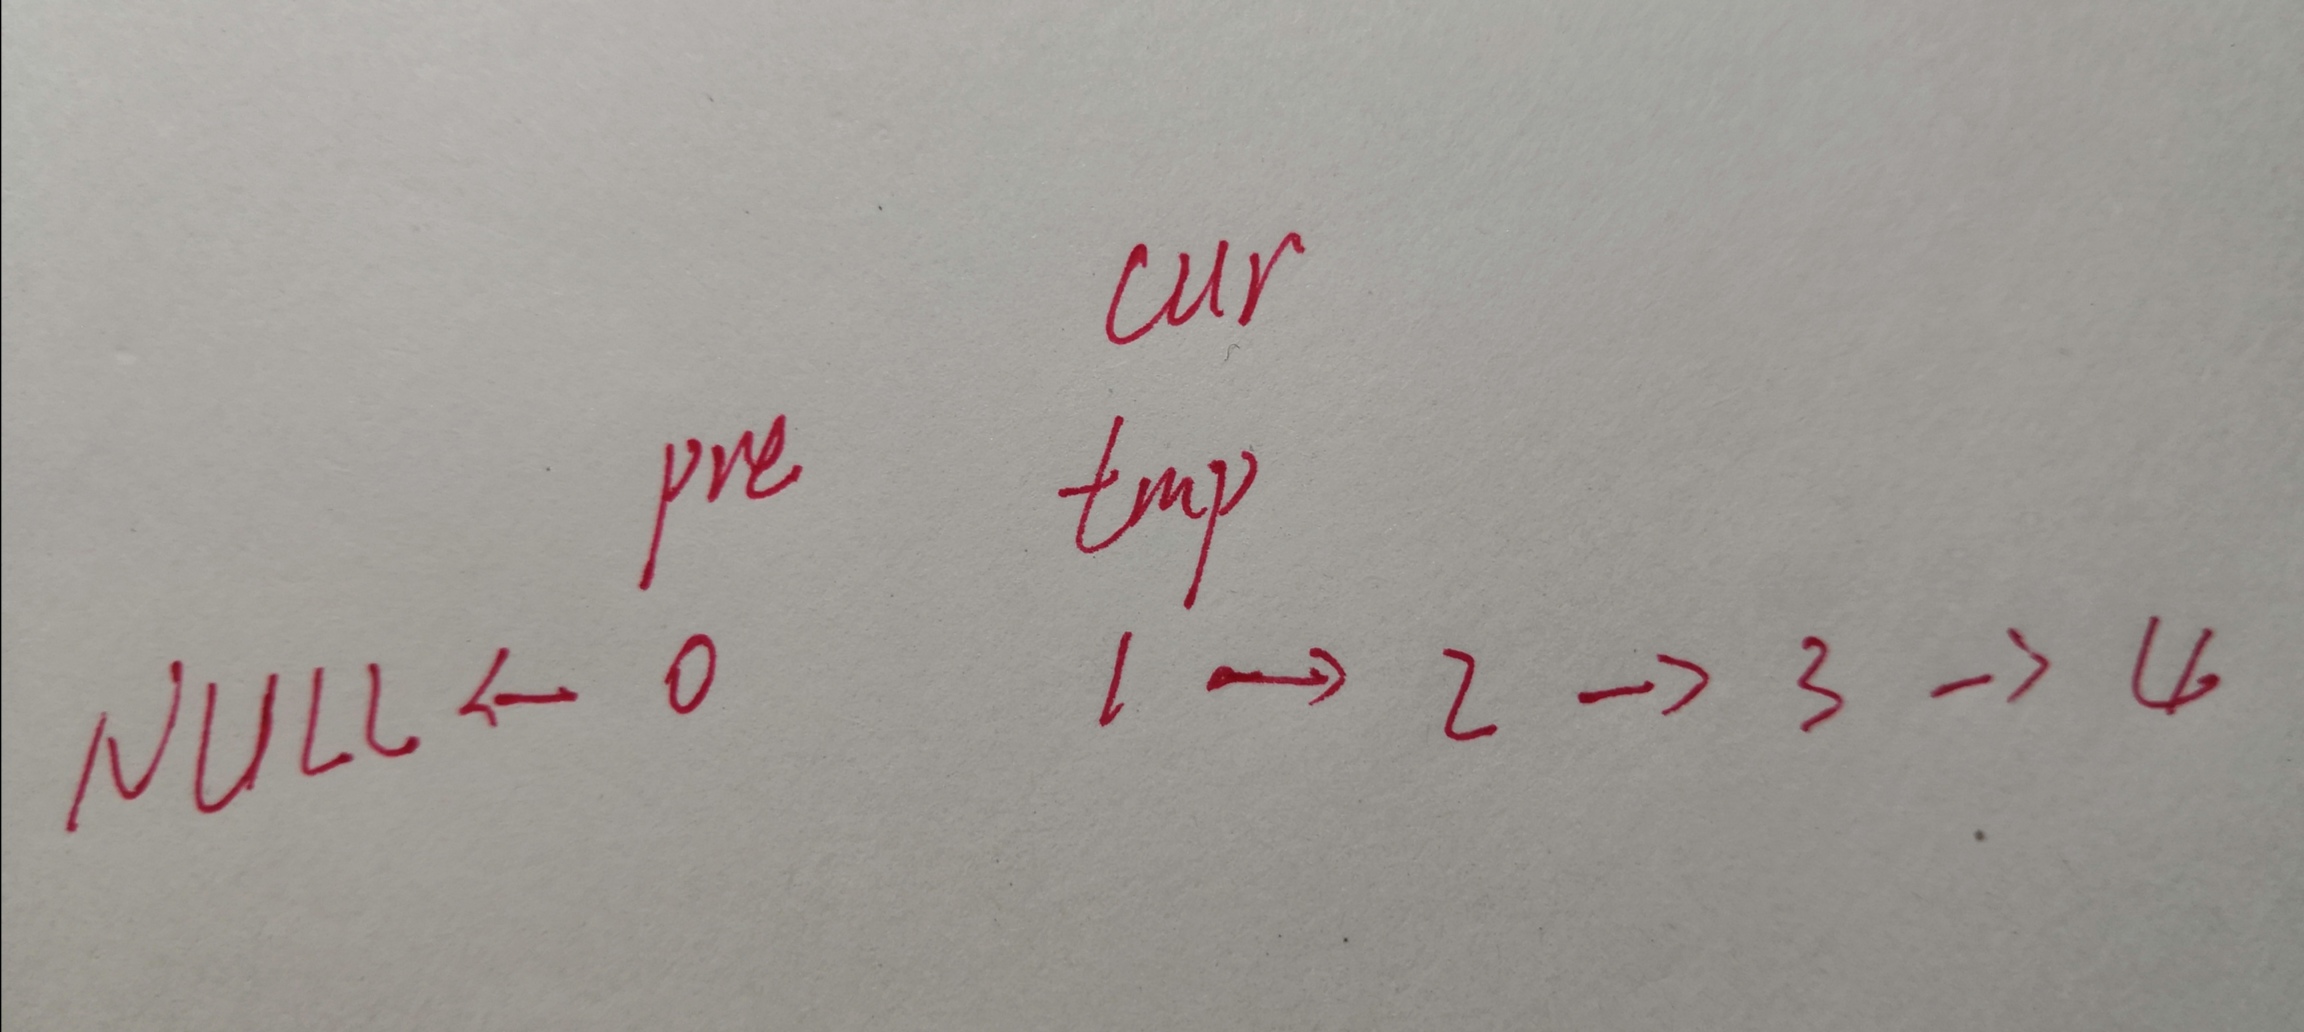 cur
pre tmp
NULL ← 0 1 → 2 → 3 → 4